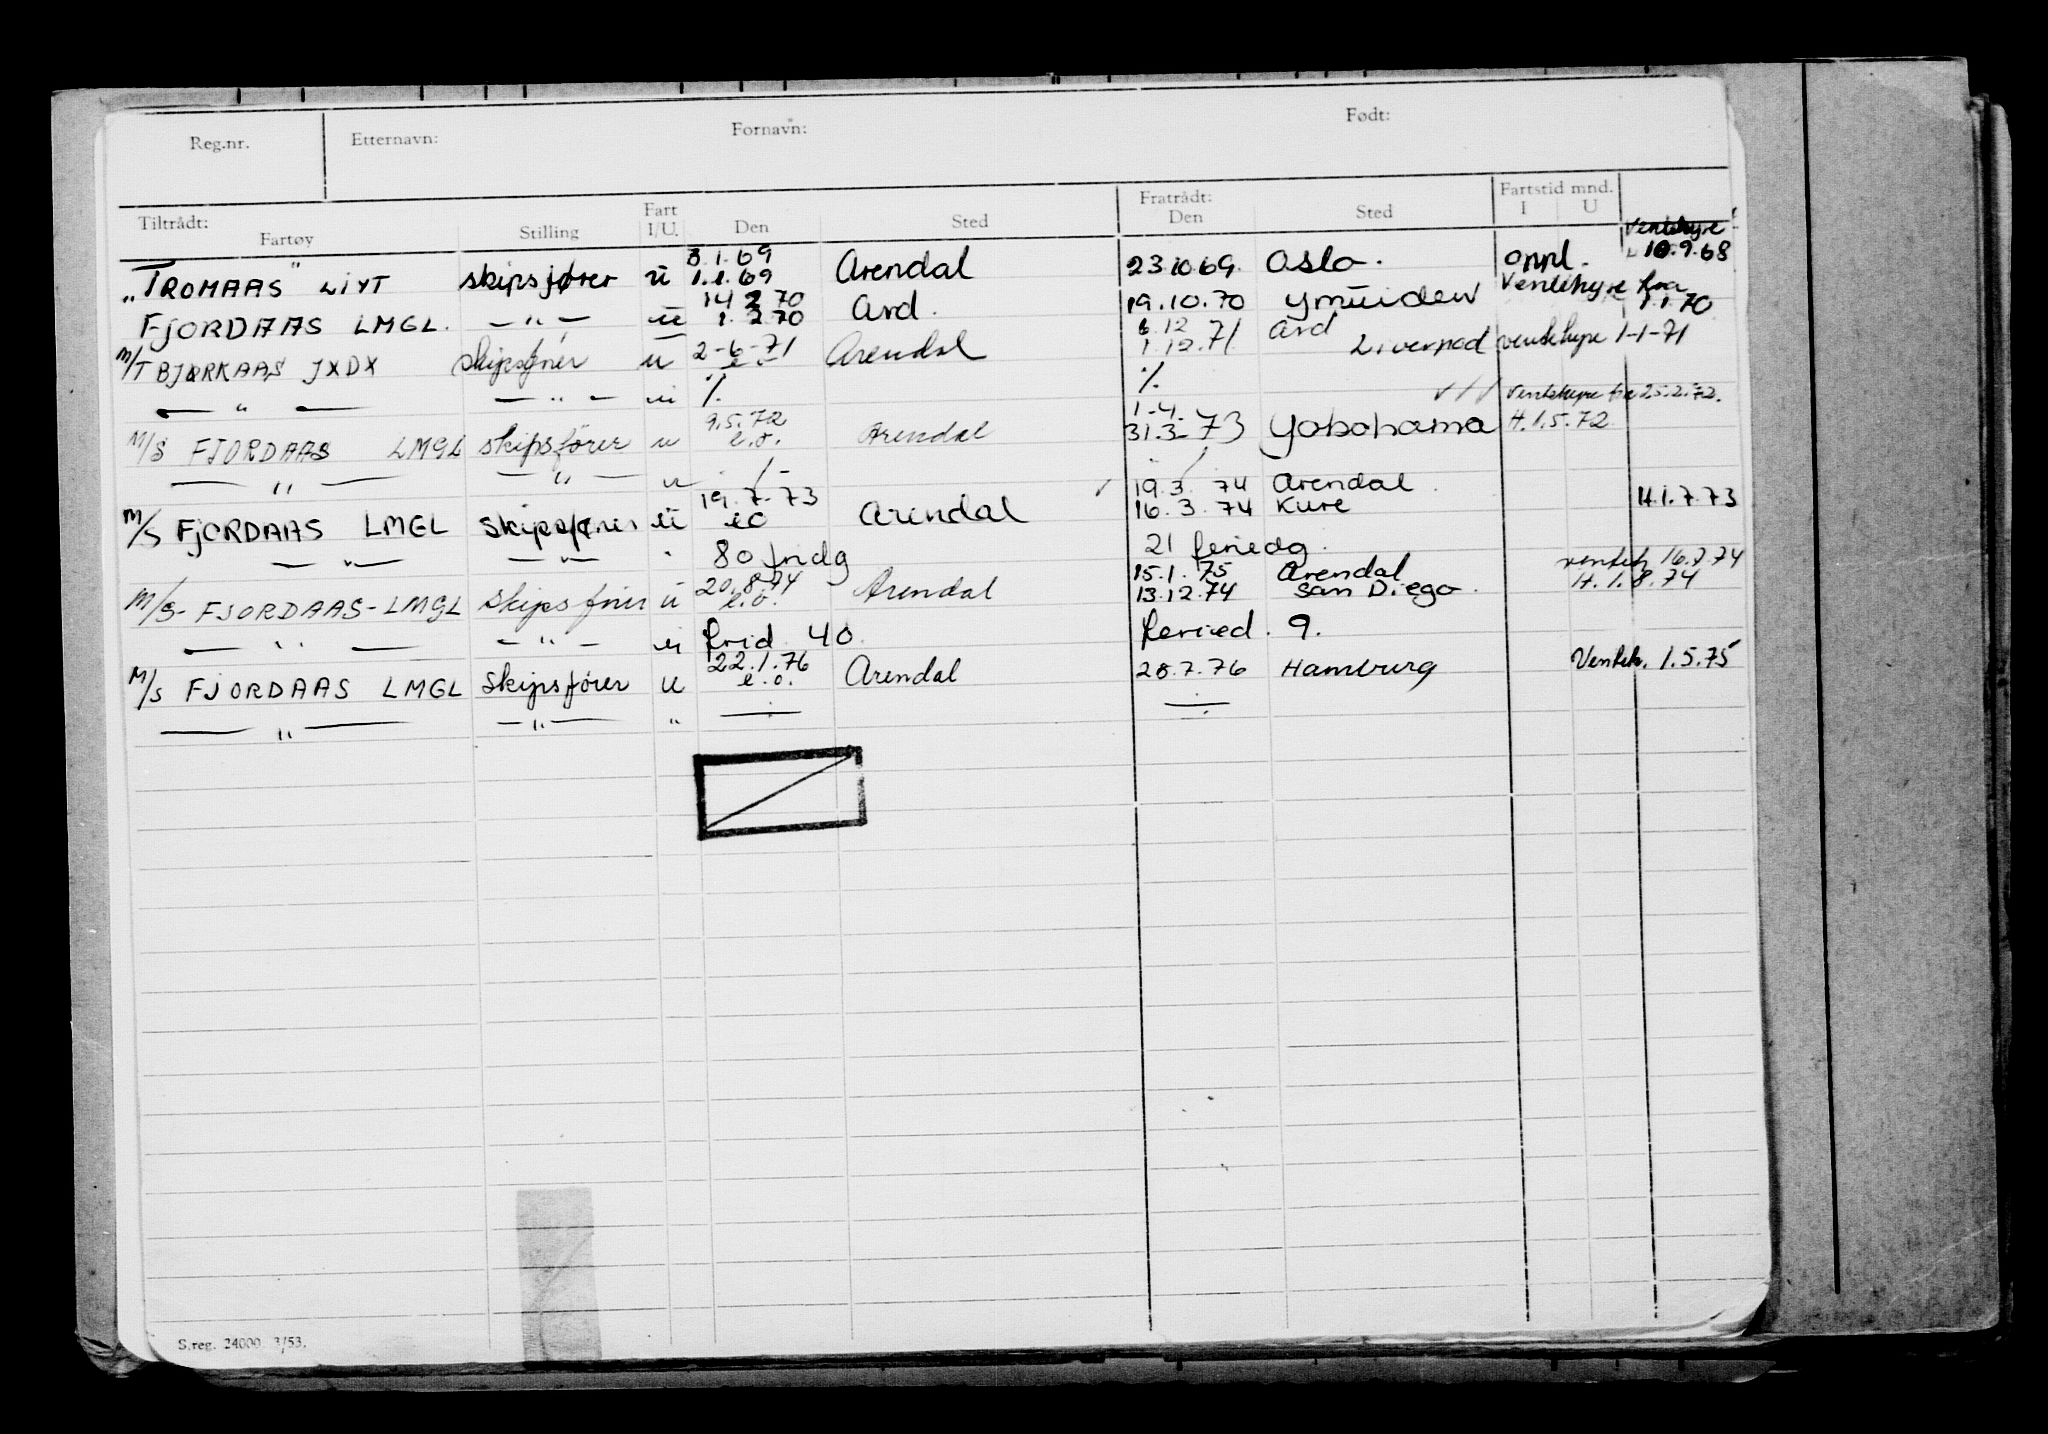 Reg.nr. Etternavn: Fornavn: Født:
Tiltrådt: Fratrådt: Fartstid mnd.
Fartøy Stilling Fart I/U. Den Sted Den Sted I U
Ventehyre 10.9.68
3.1.69
"TROMAAS" LIYT skipsfører u 1.1.69 Arendal 23.10.69. Oslo. oppl.
14 2 70 Ventehyre fra
FJORDAAS LMGL. — " — u 1.2.70 Ard. 19.10.70 Ymuiden 1.1.70
6.12 Ard
M/T BJØRKAAS JXDX Skipsfører u 2-6-71 e.o. Arendal 1.12.71 Liverpool ventehyre 1-1-71
— " — — " — u ./. ./. Ventehyre fra 25.2.72.
9.5.72 1-4.
M/S FJORDAAS LMGL skipsfører u e.o. Arendal 31.3-73 Yokohama H.1.5.72
— " — — " — u -/-
19.7.73 19.3.74 Arendal
M/S FJORDAAS LMGL skipsfører u eo Arendal 16.3.74 Kure H.1.7.73
— " — — " — " 80 fridg 21 feriedg.
20.8.74 15.1.75 Arendal venteh 16.7.74
M/S- FJORDAAS-LMGL skipsfører u e.o. Arendal 13.12.74 San Diego. H.1.8.74
— " — — " — u frid. 40 feried. 9.
22.1.76
M/S FJORDAAS LMGL Skipsfører u e.o. Arendal 28.7.76 Hamburg Venteh. 1.5.75
— " — — " — "
S.reg. 24000. 3/53.